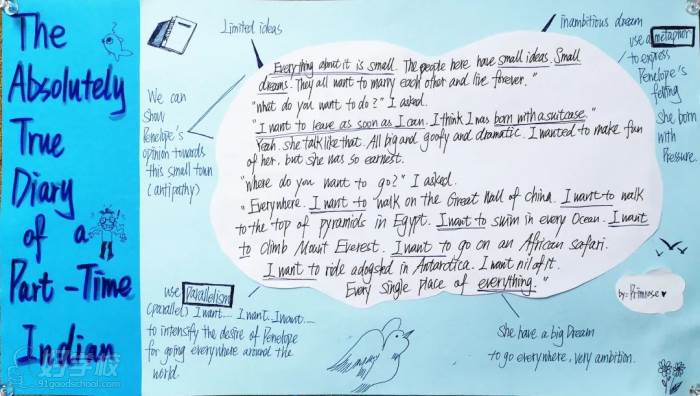 The
Absolutely
True
Diary
of a
Part-Time
Indian
Limited ideas
inambitious dream
use a metaphor
to express
Penelope's
felling
She born
with
Pressure.
We can
show
Penelope's
opinion towards
this small town
(antipathy)
Everything about it is small. The people here have small ideas. Small
dreams. They all want to marry each other and live forever."
"what do you want to do?" I asked.
"I want to leave as soon as I can. I think I was born with a suitcase."
Yeah. She talk like that. All big and goofy and dramatic. I wanted to make fun
of her. but she was so earnest.
"where do you want to go?" I asked.
"Everywhere. I want to walk on the Great Wall of china. I want to walk
to the top of pyramids in Egypt. I want to swim in every Ocean. I want
to climb Mount Everest. I want to go on an African safari.
I want to ride a dogsled in Antarctica. I want all of it.
Every single place of everything."
by: Primrose
use parallelism
(parallel) I want.... I want.. I want....
to intensify the desire of Penelope
for going everywhere around the
world.
she have a big Dream
to go everywhere, very ambition.
好学校
91goodschool.com